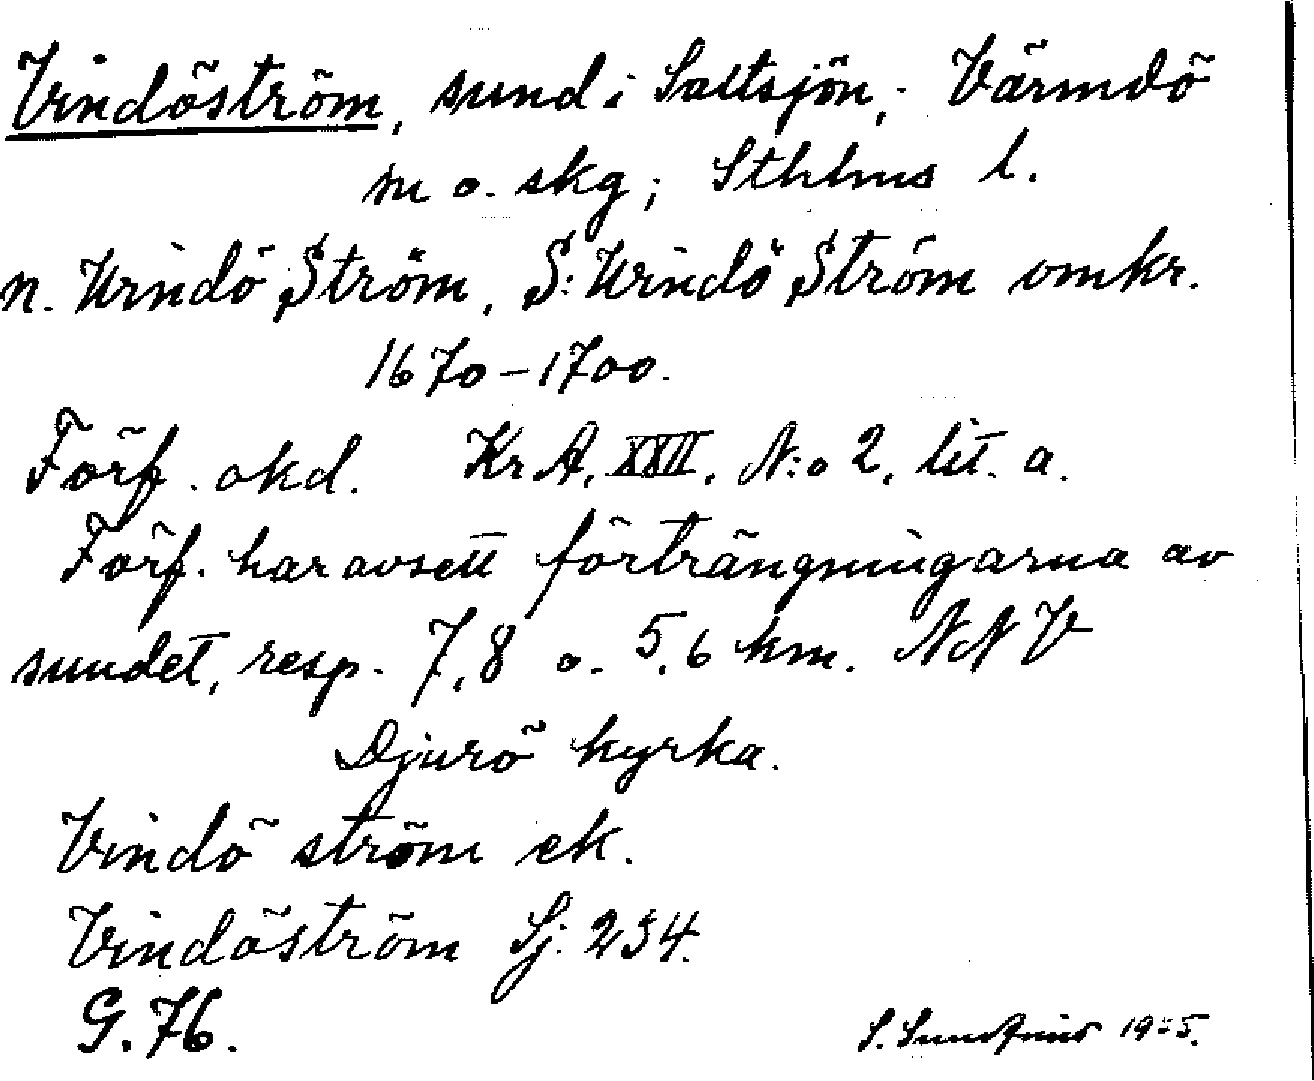 Vindöström, sund i Saltsjön, Värmdö
m o. skg; Sthlms l.
n. Windö Ström, S: Windö Ström omkr.
1670–1700.
Förf. okd. Kr A, XXII, N:o 2, lit. a.
Förf. har avsett förträngningarna av
sundet, resp. 7,8 o. 5,6 km. NNV
Djurö kyrka.
Vindö ström ek.
Vindöström Sj. 234.
G. 76.
S.